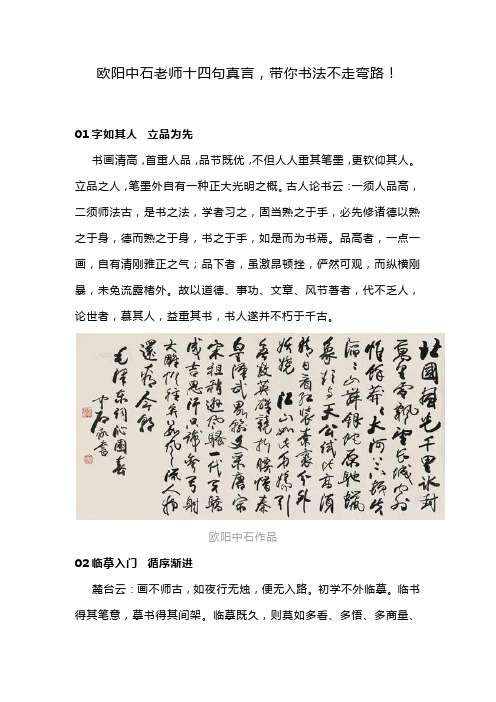 欧阳中石老师十四句真言，带你书法不走弯路！
01 字如其人　立品为先
书画清高，首重人品，品节既优，不但人人重其笔墨，更钦仰其人。
立品之人，笔墨外自有一种正大光明之概。古人论书云：一须人品高，
二须师法古，是书之法，学者习之，固当熟之于手，必先修诸德以熟
之于身，德而熟之于身，书之于手，如是而为书焉。品高者，一点一
画，自有清刚雅正之气；品下者，虽激昂顿挫，俨然可观，而纵横刚
暴，未免流露楮外。故以道德、事功、文章、风节著者，代不乏人，
论世者，慕其人，益重其书，书人遂并不朽于千古。
北國風光千里冰封
萬里雪飄望長城內外
惟餘莽莽大河上下頓失
滔滔山舞銀蛇原馳蠟
象欲與天公試比高須
晴日看紅裝素裹分外
妖嬈江山如此多嬌引
無數英雄競折腰惜秦
皇漢武略輸文采唐宗
宋祖稍遜風騷一代天驕
成吉思汗只識彎弓射
大雕俱往矣數風流人物
還看今朝
毛澤東詞沁園春
中石
欧阳中石作品
02 临摹入门　循序渐进
麓台云：画不师古，如夜行无烛，便无入路。初学不外临摹。临书
得其笔意，摹书得其间架。临摹既久，则莫如多看、多悟、多商量、